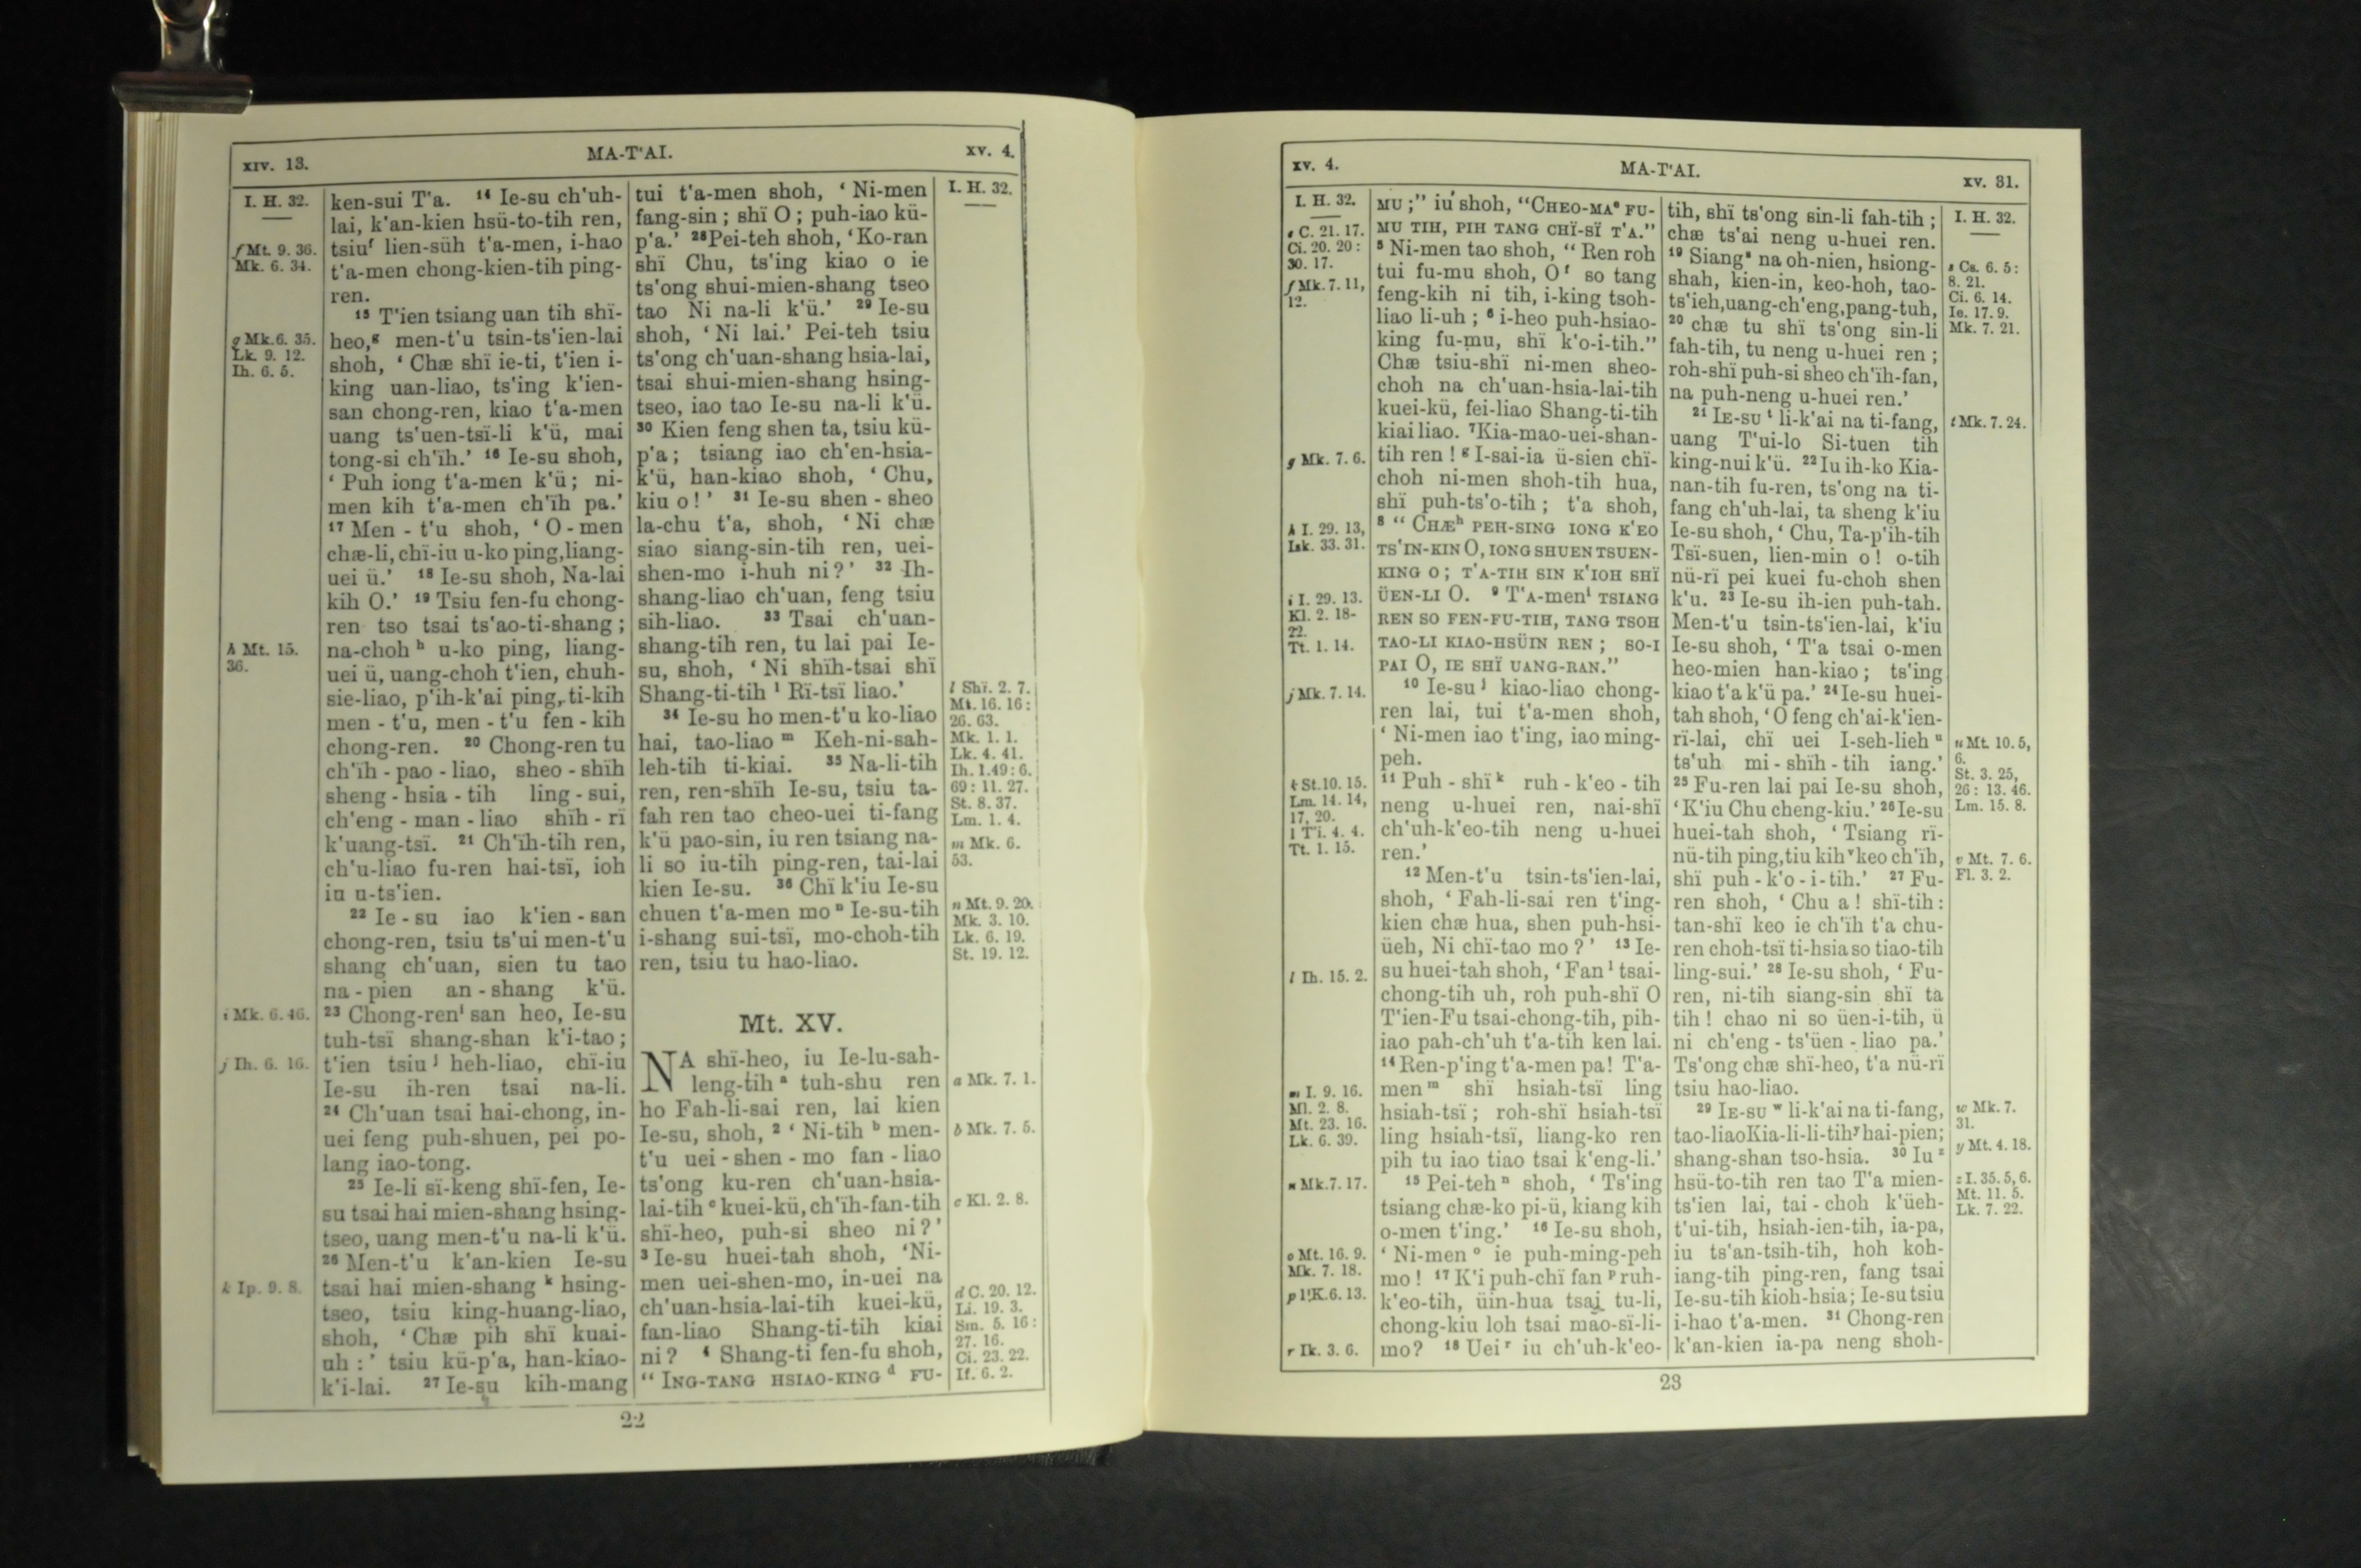 xiv. 13.
MA-T'AI.
xv. 4.
I. H. 32.
f Mt. 9. 36.
Mk. 6. 34.
g Mk. 6. 35.
Lk. 9. 12.
Ih. 6. 5.
h Mt. 15.
36.
i Mk. 6. 46.
j Ih. 6. 16.
k Ip. 9. 8.
ken-sui T'a. 14 Ie-su ch'uh-
lai, k'an-kien hsü-to-tih ren,
tsiu f lien-süh t'a-men, i-hao
t'a-men chong-kien-tih ping-
ren.
15 T'ien tsiang uan tih shï-
heo, g men-t'u tsin-ts'ien-lai
shoh, ‘ Chæ shï ie-ti, t'ien i-
king uan-liao, ts'ing k'ien-
san chong-ren, kiao t'a-men
uang ts'uen-tsï-li k'ü, mai
tong-si ch'ïh.’ 16 Ie-su shoh,
‘ Puh iong t'a-men k'ü; ni-
men kih t'a-men ch'ïh pa.’
17 Men - t'u shoh, ‘ O - men
chæ-li, chï-iu u-ko ping, liang-
uei ü.’ 18 Ie-su shoh, Na-lai
kih O.’ 19 Tsiu fen-fu chong-
ren tso tsai ts'ao-ti-shang;
na-choh h u-ko ping, liang-
uei ü, uang-choh t'ien, chuh-
sie-liao, p'ih-k'ai ping, ti-kih
men - t'u, men - t'u fen - kih
chong-ren. 20 Chong-ren tu
ch'ïh - pao - liao, sheo - shïh
sheng - hsia - tih ling - sui,
ch'eng - man - liao shïh - rï
k'uang-tsï. 21 Ch'ïh-tih ren,
ch'u-liao fu-ren hai-tsï, ioh
iu u-ts'ien.
22 Ie - su iao k'ien - san
chong-ren, tsiu ts'ui men-t'u
shang ch'uan, sien tu tao
na - pien an - shang k'ü.
23 Chong-ren i san heo, Ie-su
tuh-tsï shang-shan k'i-tao;
t'ien tsiu j heh-liao, chï-iu
Ie-su ih-ren tsai na-li.
24 Ch'uan tsai hai-chong, in-
uei feng puh-shuen, pei po-
lang iao-tong.
25 Ie-li sï-keng shï-fen, Ie-
su tsai hai mien-shang hsing-
tseo, uang men-t'u na-li k'ü.
26 Men-t'u k'an-kien Ie-su
tsai hai mien-shang k hsing-
tseo, tsiu king-huang-liao,
shoh, ‘ Chæ pih shï kuai-
uh :’ tsiu kü-p'a, han-kiao-
k'i-lai. 27 Ie-su kih-mang
tui t'a-men shoh, ‘ Ni-men
fang-sin; shï O; puh-iao kü-
p'a.’ 28 Pei-teh shoh, ‘ Ko-ran
shï Chu, ts'ing kiao o ie
ts'ong shui-mien-shang tseo
tao Ni na-li k'ü.’ 29 Ie-su
shoh, ‘ Ni lai.’ Pei-teh tsiu
ts'ong ch'uan-shang hsia-lai,
tsai shui-mien-shang hsing-
tseo, iao tao Ie-su na-li k'ü.
30 Kien feng shen ta, tsiu kü-
p'a; tsiang iao ch'en-hsia-
k'ü, han-kiao shoh, ‘ Chu,
kiu o!’ 31 Ie-su shen - sheo
la-chu t'a, shoh, ‘ Ni chæ
siao siang-sin-tih ren, uei-
shen-mo i-huh ni?’ 32 Ih-
shang-liao ch'uan, feng tsiu
sih-liao. 33 Tsai ch'uan-
shang-tih ren, tu lai pai Ie-
su, shoh, ‘ Ni shïh-tsai shï
Shang-ti-tih l Rï-tsï liao.’
34 Ie-su ho men-t'u ko-liao
hai, tao-liao m Keh-ni-sah-
leh-tih ti-kiai. 35 Na-li-tih
ren, ren-shïh Ie-su, tsiu ta-
fah ren tao cheo-uei ti-fang
k'ü pao-sin, iu ren tsiang na-
li so iu-tih ping-ren, tai-lai
kien Ie-su. 36 Chï k'iu Ie-su
chuen t'a-men mo n Ie-su-tih
i-shang sui-tsï, mo-choh-tih
ren, tsiu tu hao-liao.
Mt. XV.
NA shï-heo, iu Ie-lu-sah-
leng-tih a tuh-shu ren
ho Fah-li-sai ren, lai kien
Ie-su, shoh, 2 ‘ Ni-tih b men-
t'u uei - shen - mo fan - liao
ts'ong ku-ren ch'uan-hsia-
lai-tih c kuei-kü, ch'ïh-fan-tih
shï-heo, puh-si sheo ni?’
3 Ie-su huei-tah shoh, ‘Ni-
men uei-shen-mo, in-uei na
ch'uan-hsia-lai-tih kuei-kü,
fan-liao Shang-ti-tih kiai
ni? 4 Shang-ti fen-fu shoh,
“ Ing-tang hsiao-king d fu-
I. H. 32.
l Shï. 2. 7.
Mt. 16. 16 :
26. 63.
Mk. 1. 1.
Lk. 4. 41.
Ih. 1. 49 : 6.
69 : 11. 27.
St. 8. 37.
Lm. 1. 4.
m Mk. 6.
53.
n Mt. 9. 20.
Mk. 3. 10.
Lk. 6. 19.
St. 19. 12.
a Mk. 7. 1.
b Mk. 7. 5.
c Kl. 2. 8.
d C. 20. 12.
Li. 19. 3.
Sm. 5. 16 :
27. 16.
Ci. 23. 22.
If. 6. 2.
22
xv. 4.
MA-T'AI.
xv. 31.
I. H. 32.
e C. 21. 17.
Ci. 20. 20 :
30. 17.
f Mk. 7. 11,
12.
g Mk. 7. 6.
h I. 29. 13,
Isk. 33. 31.
i I. 29. 13.
Kl. 2. 18-
22.
Tt. 1. 14.
j Mk. 7. 14.
k St. 10. 15.
Lm. 14. 14,
17, 20.
1 T'i. 4. 4.
Tt. 1. 15.
l Ih. 15. 2.
m I. 9. 16.
Ml. 2. 8.
Mt. 23. 16.
Lk. 6. 39.
n Mk. 7. 17.
o Mt. 16. 9.
Mk. 7. 18.
p 1 K. 6. 13.
r Ik. 3. 6.
mu;” iu shoh, “Cheo-ma e fu-
mu tih, pih tang chï-sï t'a.”
5 Ni-men tao shoh, “ Ren roh
tui fu-mu shoh, O f so tang
feng-kih ni tih, i-king tsoh-
liao li-uh; 6 i-heo puh-hsiao-
king fu-mu, shï k'o-i-tih.”
Chæ tsiu-shï ni-men sheo-
choh na ch'uan-hsia-lai-tih
kuei-kü, fei-liao Shang-ti-tih
kiai liao. 7 Kia-mao-uei-shan-
tih ren! g I-sai-ia ü-sien chï-
choh ni-men shoh-tih hua,
shï puh-ts'o-tih; t'a shoh,
8 “ Chæ h peh-sing iong k'eo
ts'in-kin O, iong shuen tsuen-
king o; t'a-tih sin k'ioh shï
üen-li O. 9 T'a-men i tsiang
ren so fen-fu-tih, tang tsoh
tao-li kiao-hsüin ren; so-i
pai O, ie shï uang-ran.”
10 Ie-su j kiao-liao chong-
ren lai, tui t'a-men shoh,
‘ Ni-men iao t'ing, iao ming-
peh.
11 Puh - shï k ruh - k'eo - tih
neng u-huei ren, nai-shï
ch'uh-k'eo-tih neng u-huei
ren.’
12 Men-t'u tsin-ts'ien-lai,
shoh, ‘ Fah-li-sai ren t'ing-
kien chæ hua, shen puh-hsi-
üeh, Ni chï-tao mo?’ 13 Ie-
su huei-tah shoh, ‘ Fan l tsai-
chong-tih uh, roh puh-shï O
T'ien-Fu tsai-chong-tih, pih-
iao pah-ch'uh t'a-tih ken lai.
14 Ren-p'ing t'a-men pa! T'a-
men m shï hsiah-tsï ling
hsiah-tsï; roh-shï hsiah-tsï
ling hsiah-tsï, liang-ko ren
pih tu iao tiao tsai k'eng-li.’
15 Pei-teh n shoh, ‘ Ts'ing
tsiang chæ-ko pi-ü, kiang kih
o-men t'ing.’ 16 Ie-su shoh,
‘ Ni-men o ie puh-ming-peh
mo! 17 K'i puh-chï fan p ruh-
k'eo-tih, üin-hua tsai tu-li,
chong-kiu loh tsai mao-sï-li-
mo? 18 Uei r iu ch'uh-k'eo-
tih, shï ts'ong sin-li fah-tih;
chæ ts'ai neng u-huei ren.
19 Siang s na oh-nien, hsiong-
shah, kien-in, keo-hoh, tao-
ts'ieh, uang-ch'eng, pang-tuh,
20 chæ tu shï ts'ong sin-li
fah-tih, tu neng u-huei ren;
roh-shï puh-si sheo ch'ïh-fan,
na puh-neng u-huei ren.’
21 Ie-su t li-k'ai na ti-fang,
uang T'ui-lo Si-tuen tih
king-nui k'ü. 22 Iu ih-ko Kia-
nan-tih fu-ren, ts'ong na ti-
fang ch'uh-lai, ta sheng k'iu
Ie-su shoh, ‘ Chu, Ta-p'ih-tih
Tsï-suen, lien-min o! o-tih
nü-rï pei kuei fu-choh shen
k'u. 23 Ie-su ih-ien puh-tah.
Men-t'u tsin-ts'ien-lai, k'iu
Ie-su shoh, ‘ T'a tsai o-men
heo-mien han-kiao; ts'ing
kiao t'a k'ü pa.’ 24 Ie-su huei-
tah shoh, ‘ O feng ch'ai-k'ien-
rï-lai, chï uei I-seh-lieh u
ts'uh mi - shïh - tih iang.’
25 Fu-ren lai pai Ie-su shoh,
‘ K'iu Chu cheng-kiu.’ 26 Ie-su
huei-tah shoh, ‘ Tsiang rï-
nü-tih ping, tiu kih v keo ch'ïh,
shï puh - k'o - i-tih.’ 27 Fu-
ren shoh, ‘ Chu a! shï-tih :
tan-shï keo ie ch'ïh t'a chu-
ren choh-tsï ti-hsia so tiao-tih
ling-sui.’ 28 Ie-su shoh, ‘ Fu-
ren, ni-tih siang-sin shï ta
tih! chao ni so üen-i-tih, ü
ni ch'eng - ts'üen - liao pa.’
Ts'ong chæ shï-heo, t'a nü-rï
tsiu hao-liao.
29 Ie-su w li-k'ai na ti-fang,
tao-liao Kia-li-li-tih y hai-pien;
shang-shan tso-hsia. 30 Iu z
hsü-to-tih ren tao T'a mien-
ts'ien lai, tai - choh k'üeh-
t'ui-tih, hsiah-ien-tih, ia-pa,
iu ts'an-tsih-tih, hoh koh-
iang-tih ping-ren, fang tsai
Ie-su-tih kioh-hsia; Ie-su tsiu
i-hao t'a-men. 31 Chong-ren
k'an-kien ia-pa neng shoh-
I. H. 32.
s Cs. 6. 5 :
8. 21.
Ci. 6. 14.
Ie. 17. 9.
Mk. 7. 21.
t Mk. 7. 24.
u Mt. 10. 5,
6.
St. 3. 25,
26 : 13. 46.
Lm. 15. 8.
v Mt. 7. 6.
Fl. 3. 2.
w Mk. 7.
31.
y Mt. 4. 18.
z I. 35. 5, 6.
Mt. 11. 5.
Lk. 7. 22.
23